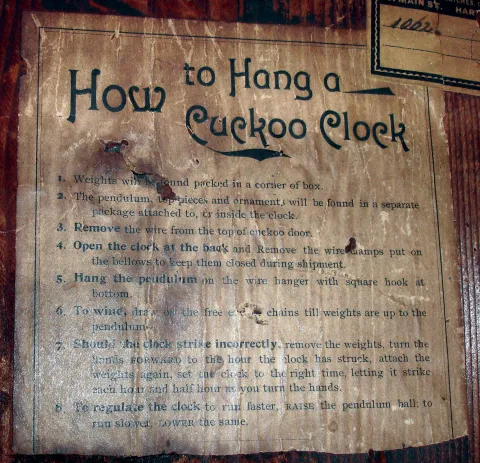 MAIN ST. HART
1002
How to Hang a
Cuckoo Clock
1. Weights will be found packed in a corner of box.
2. The pendulum, top-pieces and ornaments, will be found in a separate
package attached to, or inside the clock.
3. Remove the wire from the top of cuckoo door.
4. Open the clock at the back and Remove the wire clamps put on
the bellows to keep them closed during shipment.
5. Hang the pendulum on the wire hanger with square hook at
bottom.
6. To wind, draw on the free end chains till weights are up to the
pendulum.
7. Should the clock strike incorrectly, remove the weights, turn the
hands FORWARD to the hour the clock has struck, attach the
weights again, set the clock to the right time, letting it strike
each hour and half hour as you turn the hands.
8. To regulate the clock to run faster, RAISE the pendulum ball; to
run slower, LOWER the same.